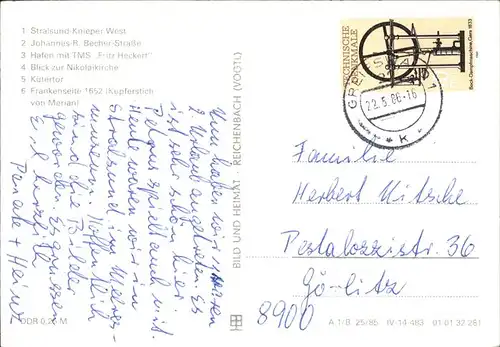 1 Stralsund-Knieper West
2 Johannes-R. Becher-Straße
3 Hafen mit TMS „Fritz Heckert"
4 Blick zur Nikolaikirche
5 Kütertor
6 Frankenseite 1652 (Kupferstich
von Merian)
Nun haben wir unseren
2. Urlaub angetreten. Es
ist sehr schön hier.
Petrus spielt auch mit.
Heute waren wir in
Stralsund im Meeres-
museum. Hoffentlich
sind die Bilder
geworden. Es grüssen
Euch herzlich
Renate + Heinz
DDR 0,20 M
BILD UND HEIMAT · REICHENBACH (VOGTL)
TECHNISCHE
DENKMALE
Bock-Dampfmaschine, Gera 1833
22.5.86-16
* K *
Familie
Herbert Nitsche
Pestalozzistr. 36
Görlitz
8900
A 1/B 25/85 IV-14-483 01 01 32 281